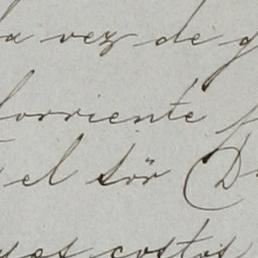 a vez de
corriente
el sör D
costos